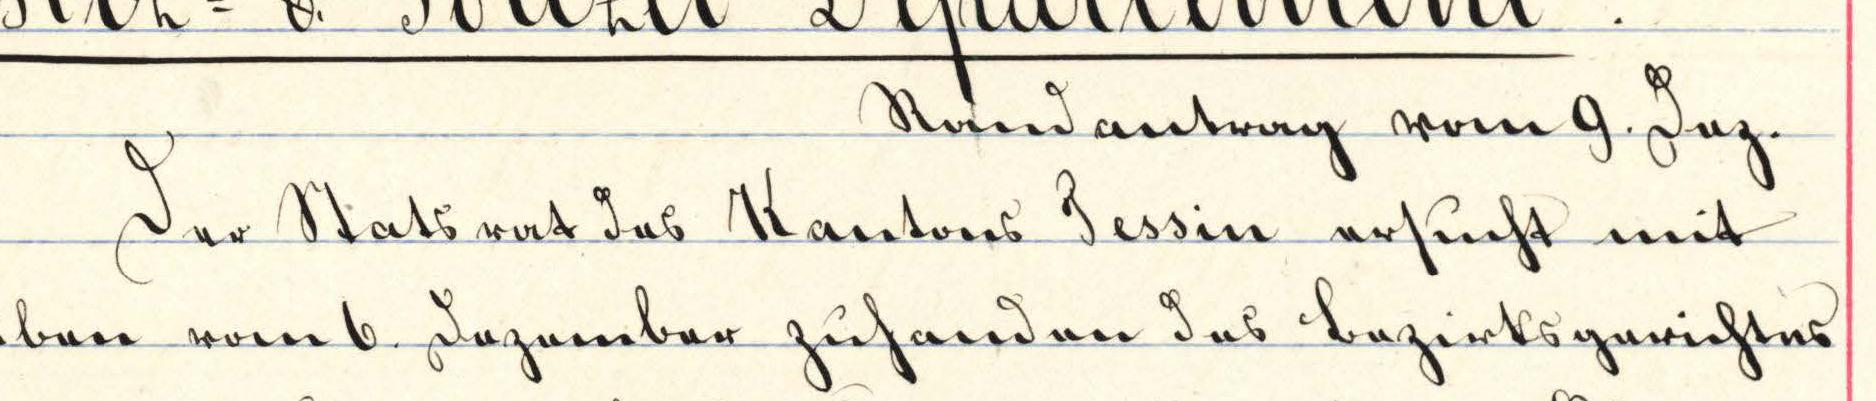 & Polizei Departement.
Randantrag vom 9. Dez.
Der Statsrat des Kantons Tessin ersucht mit
ben vom 6. Dezember zuhanden des Bezirksgerichtes